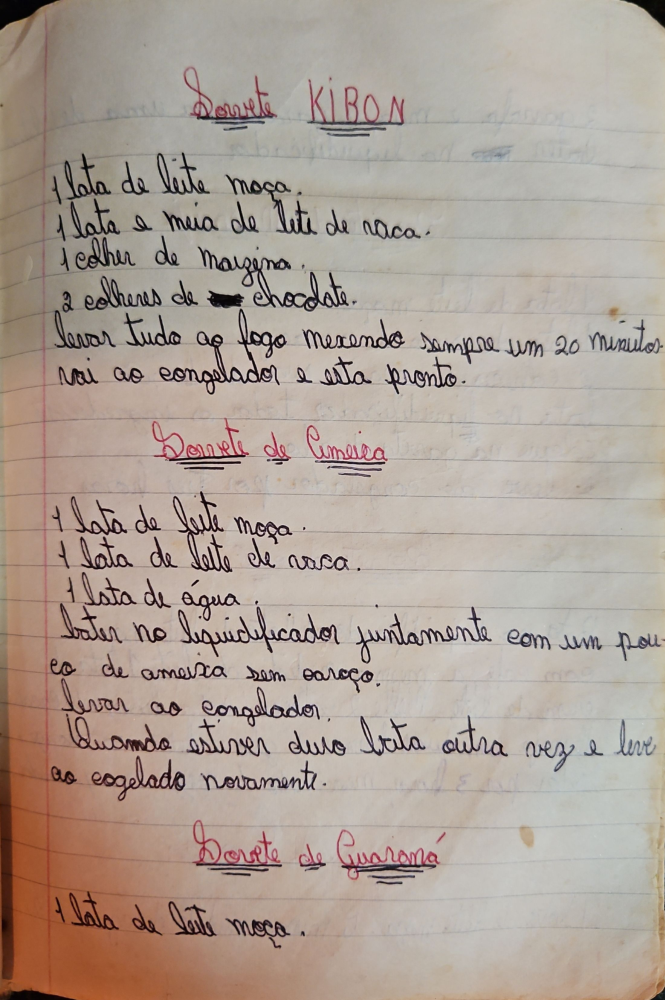 Sorvete KIBON
1 lata de leite moça.
1 lata e meia de leite de vaca.
1 colher de maizena.
2 colheres de chocolate.
levar tudo ao fogo mexendo sempre um 20 minutos
vai ao congelador e esta pronto.
Sorvete de Ameixa
1 lata de leite moça.
1 lata de leite de vaca.
1 lata de água.
bater no liquidificador juntamente com um pou-
co de ameixa sem caroço.
levar ao congelador.
Quando estiver duro bata outra vez e leve
ao cogelado novamente.
Sorvete de Guaraná
1 lata de leite moça.